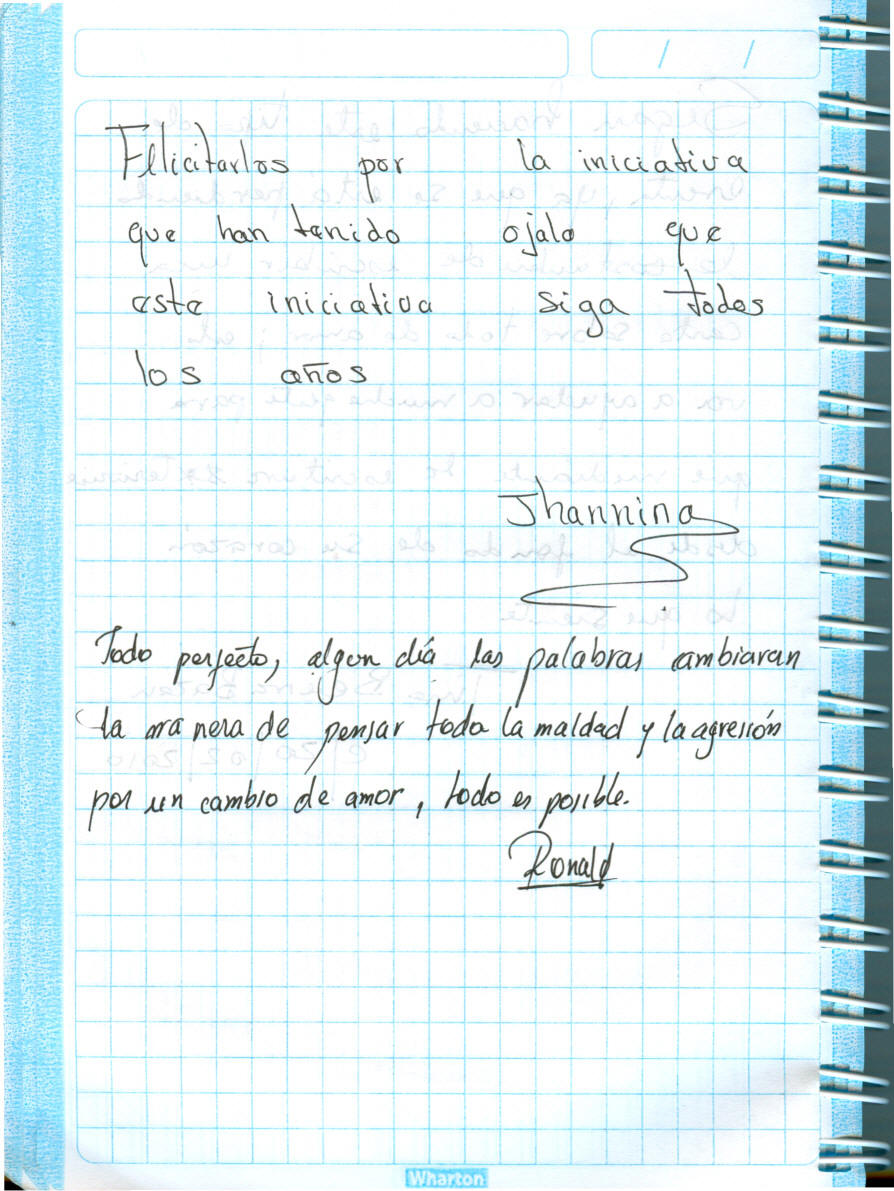 / /
Felicitarlos por la iniciativa
que han tenido ojalo que
esta iniciativa siga todos
los años
Jhannina
Todo perfecto, algun día las palabras cambiaran
la manera de pensar toda la maldad y la agresión
por un cambio de amor, todo es posible.
Ronald
Wharton